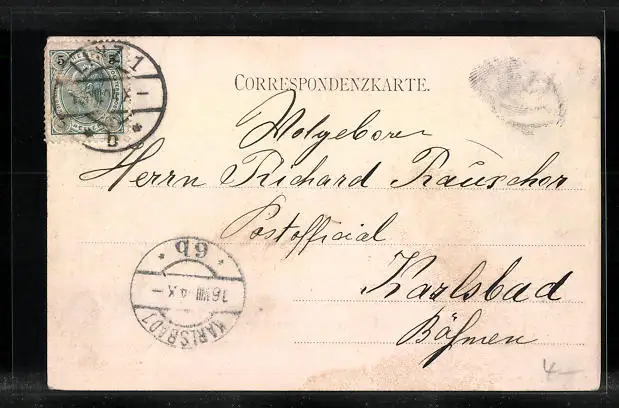 LINZ 1
5 5
CORRESPONDENZKARTE.
Wolgeboren
Herrn Richard Rauscher
Postofficial
Karlsbad
Böhmen
6b
16 VIII 4 X
KARLSBAD 1
4—